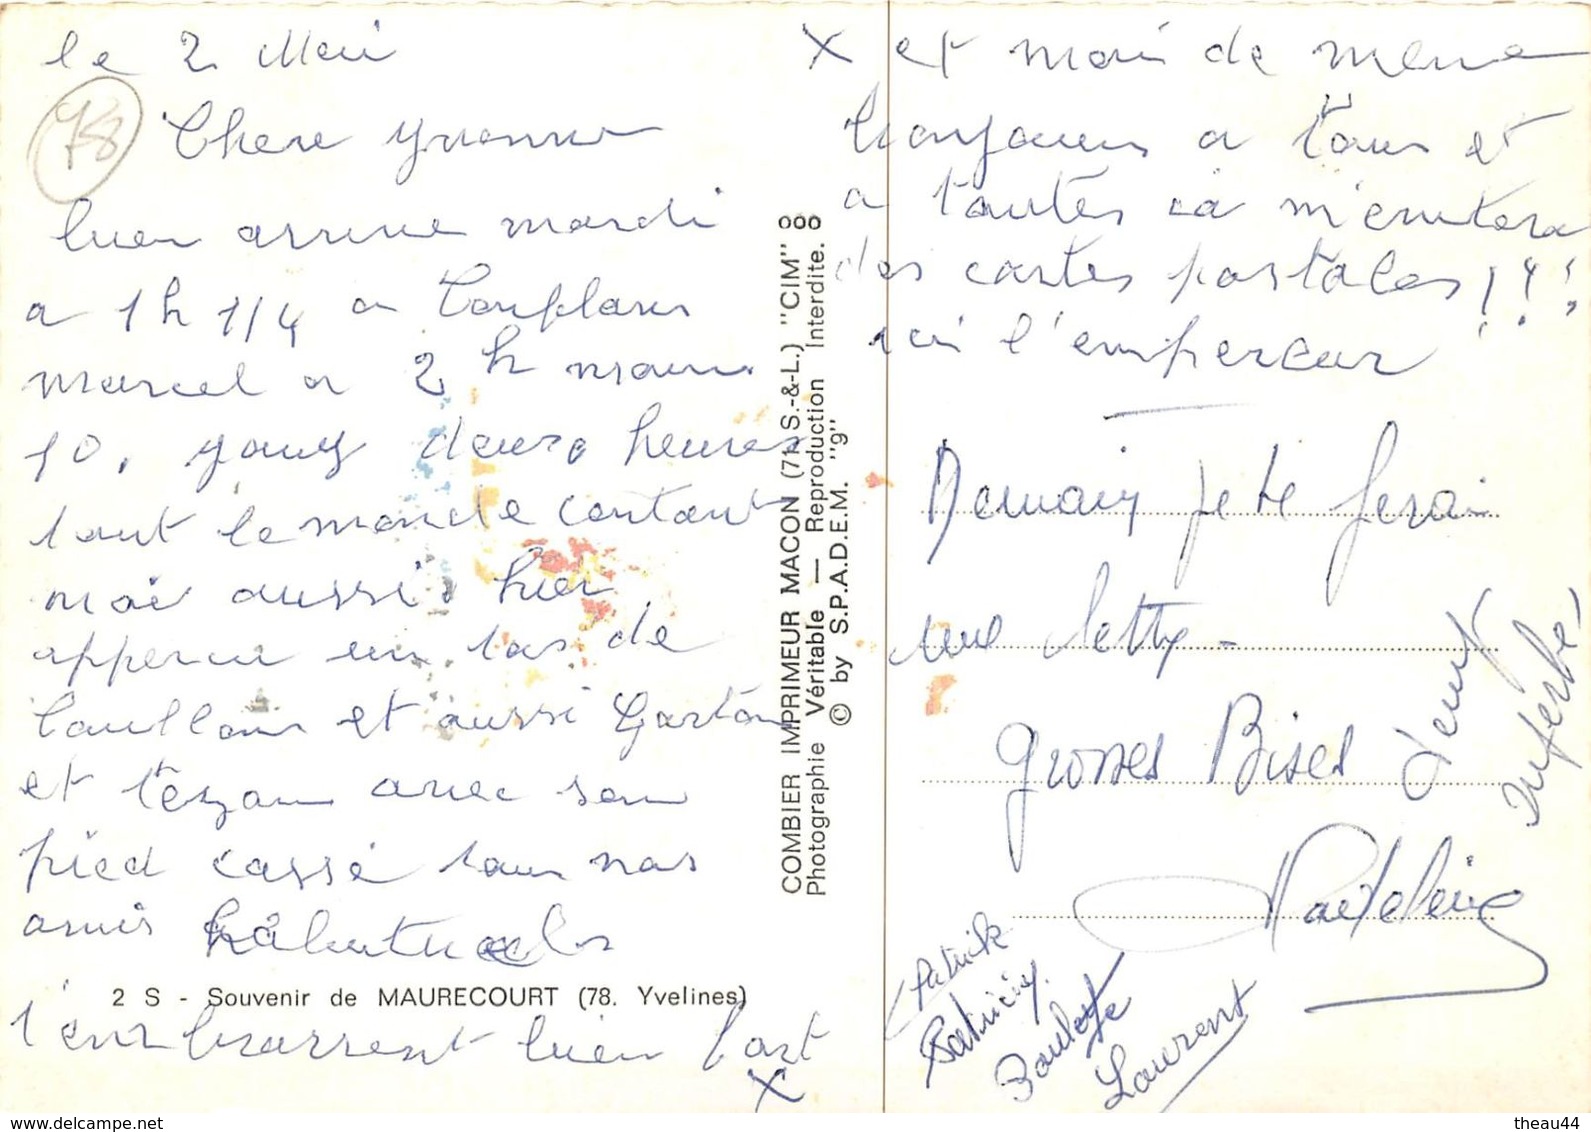 le 2 Mai
78
Chere Yvonne
bien arrivé mardi
a 1 h 1/4 a Conflans
marcel a 2 h moins
10. deux heures
tout le monde contant
moi aussi hier
apperçu un tas de
et aussi Gaston
et avec son
pied cassé tous nos
amis habituels
t'embrassent bien fort
X
X et moi de meme
toujours a tous et
a toutes ca m'evitera
des cartes postales !!!
l'empereur
Demain je te ferai
une lettre -
grosses Bises
Patrick
Patricia
Laurent
2 S - Souvenir de MAURECOURT (78. Yvelines)
COMBIER IMPRIMEUR MACON (71 S.-&-L.) "CIM"
Photographie Véritable — Reproduction Interdite.
© by S.P.A.D.E.M. "g"
theau44